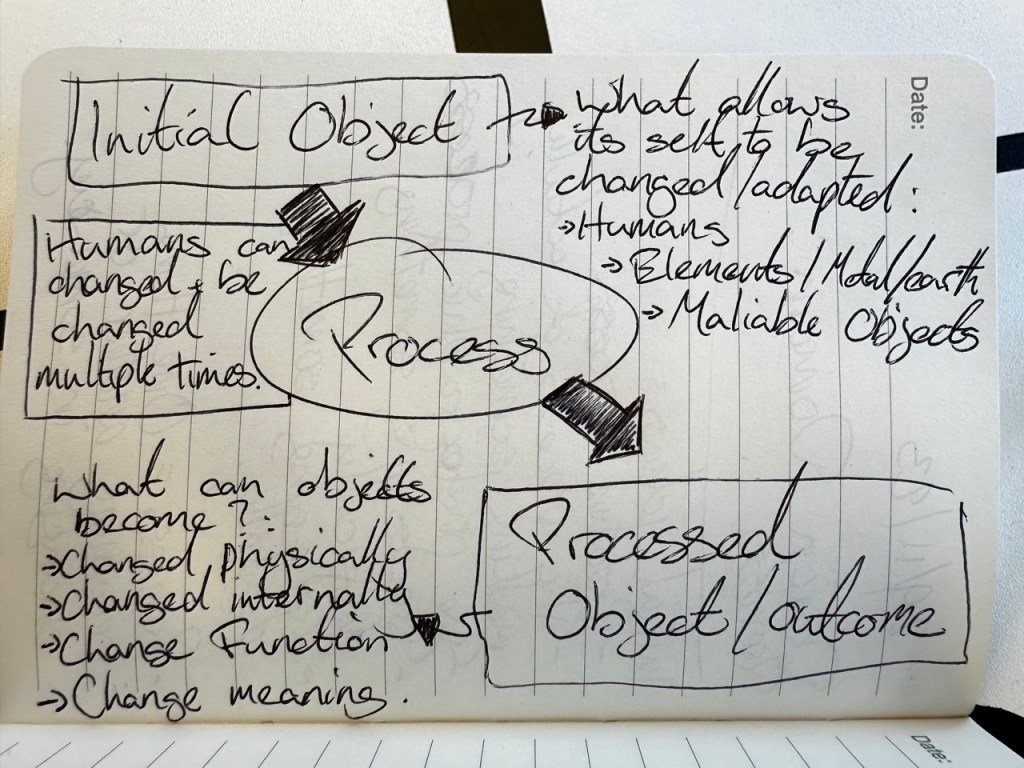 Initial Object
What allows
its self to be
changed/adapted:
→Humans
→ Elements/Metal/earth
→ Maliable Objects
Humans can
changed + be
changed
multiple times.
Process
Processed
Object/outcome
What can objects
become?:
→Changed physically
→Changed internally
→Change Function
→Change meaning.
Date:
Date: